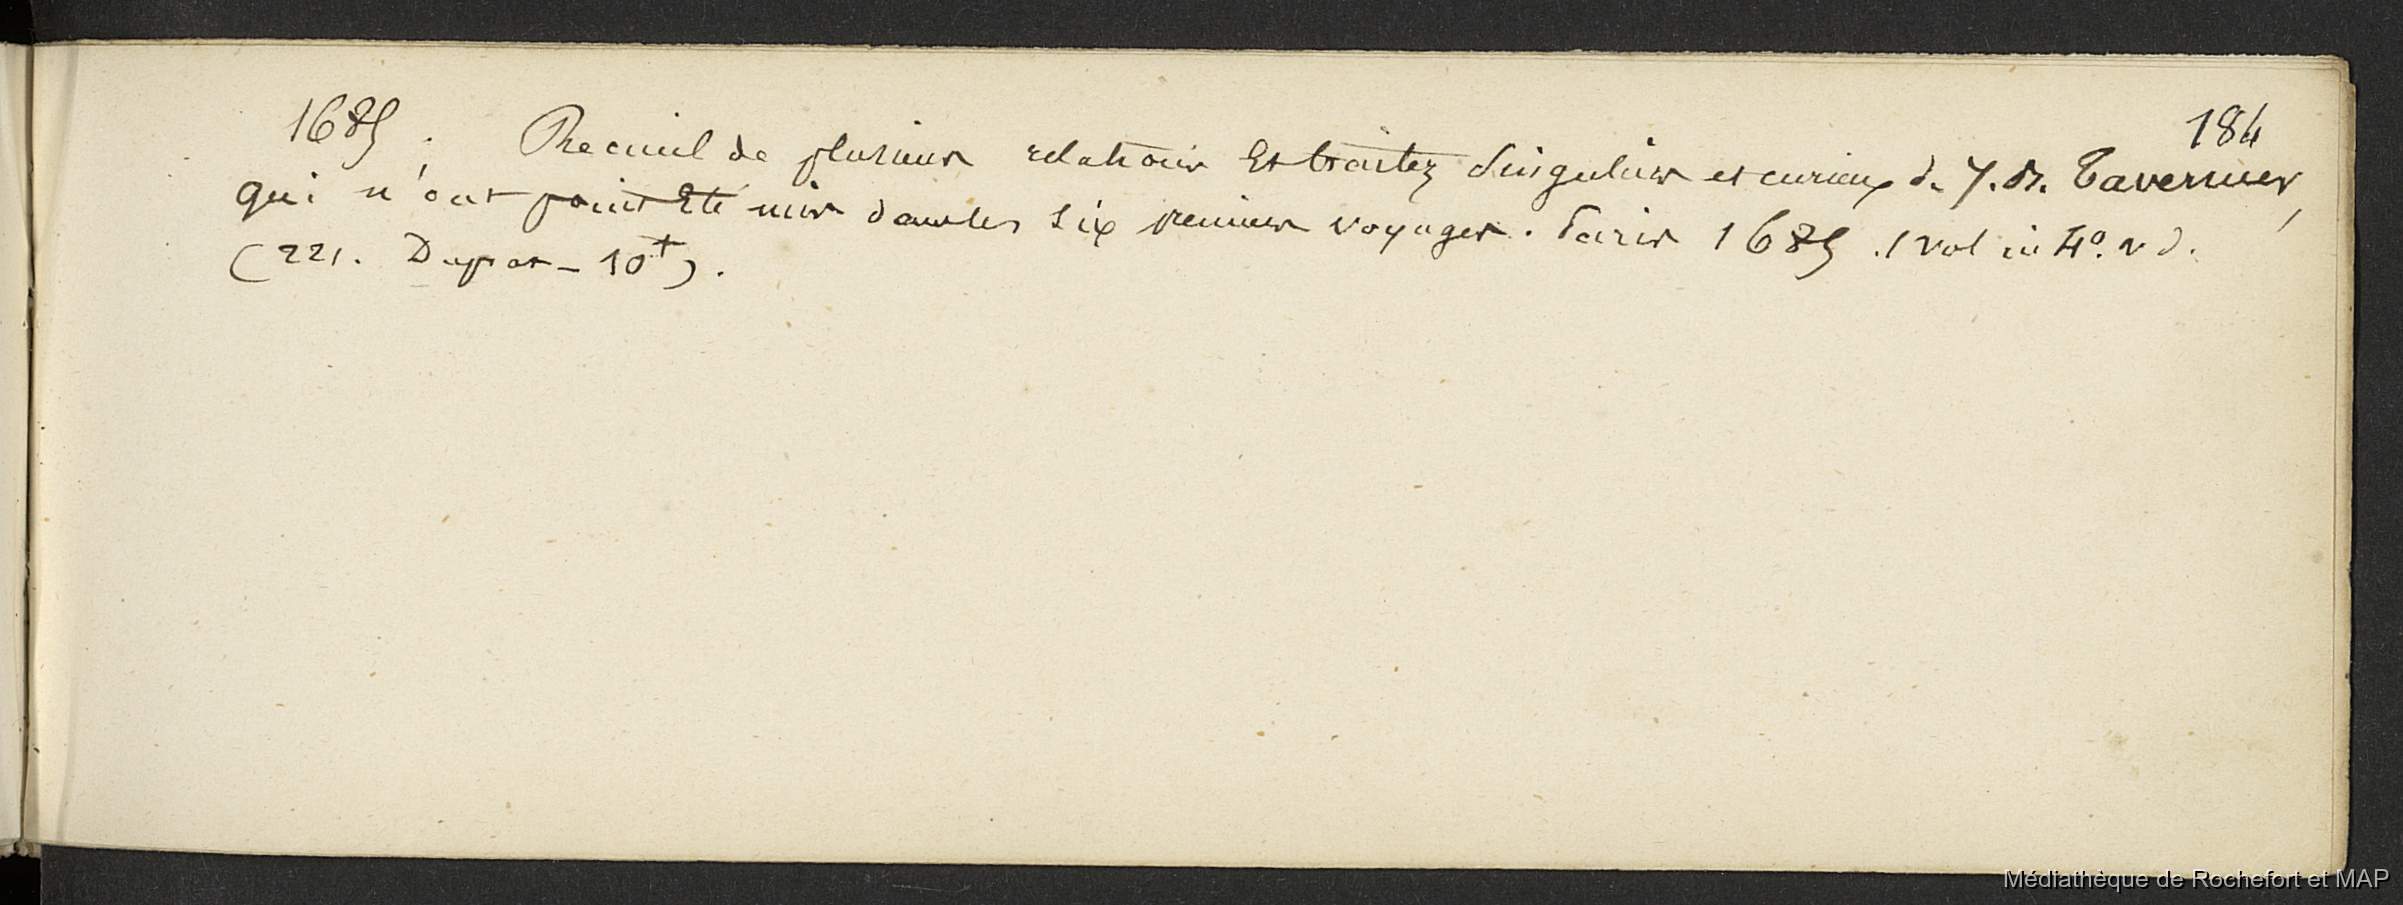 184
1685. Recueil de plusieurs relations Et traitez singuliers et curieux de J. B. Tavernier,
qui n'ont point Eté mis dans les six premiers voyages. Paris 1685. 1 vol in 4º. v d.
(221. Duprat - 10+).
Médiathèque de Rochefort et MAP